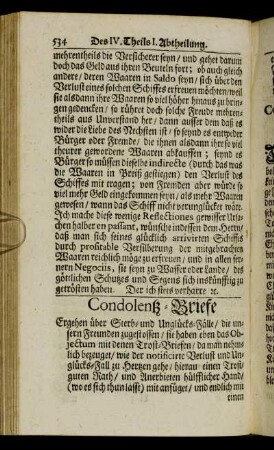 534 Des IV. Theils I. Abtheilung.
mehrentheils die Versicherer seyn/ und gehet darum
doch das Geld aus ihren Beuteln fort; ob auch gleich
andere/ deren Waaren in Saldo seyn/ sich über den
Verlust eines solchen Schiffes erfreuen möchten/ weil
sie alsdann ihre Waaren so viel höher hinaus zu brin-
gen gedencken/ so rühret doch solche Freude mehren-
theils aus Unverstand her/ dann ausser dem daß es
wider die Liebe des Nechsten ist/ so seynd es entweder
Bürger oder Fremde/ die ihnen alsdann ihre so viel
theurer gewordene Waaren abkauffen; seynd es
Bürger so müssen dieselbe indirecte (durch das was
die Waaren in Preiß gestiegen) den Verlust des
Schiffes mit tragen; von Fremden aber würde so
viel mehr Geld eingekommen seyn/ als mehr Waaren
gewesen/ wann das Schiff nicht verunglückt wäre.
Ich mache diese wenige Reflectiones gewisser Ursa-
chen halber en passant, wünsche indessen dem Herrn/
daß man sich seines glücklich arrivirten Schiffs
durch profitable Versilberung der mitgebrachten
Waaren reichlich möge zu erfreuen/ und in allen fer-
nern Negociis, sie seyn zu Wasser oder Lande/ des
göttlichen Schutzes und Segens sich inskünfftig zu
getrösten haben. Der ich stets verharre ꝛc.
Condolentz-Briefe
Ergehen über Sterb- und Unglücks-Fälle/ die un-
sern Freunden zugestossen/ sie haben eben das Ob-
jectum mit denen Trost-Briefen/ da man nehm-
lich bezeuget/ wie der notificirte Verlust und Un-
glücks-Fall zu Hertzen gehe/ hierauf einen Trost/
guten Rath/ und Anerbieten hülfflicher Hand/
(wo es sich thun lasst) mit anfüget/ und endlich mit
einen